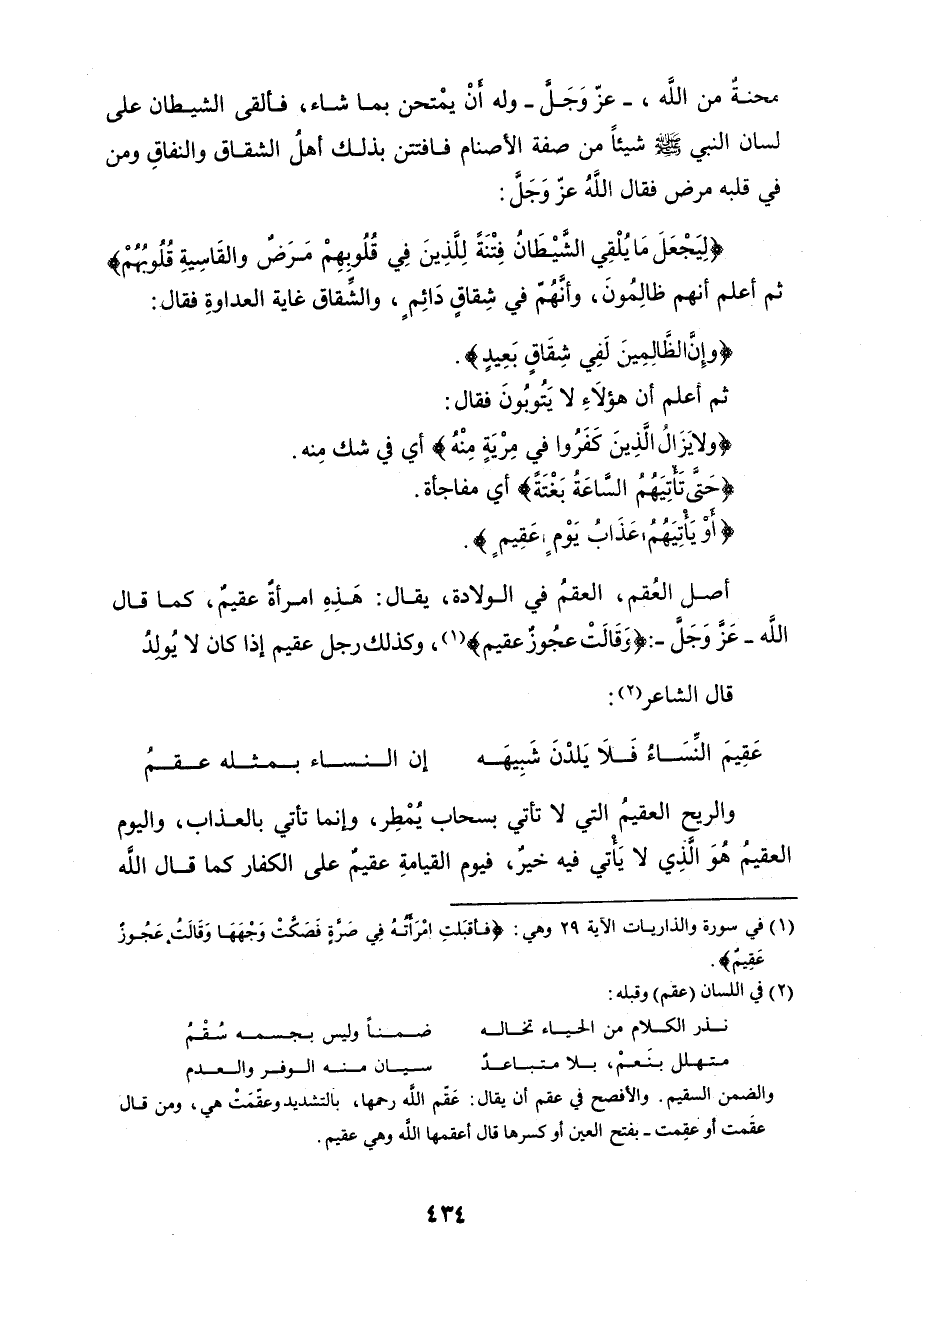 محنةٌ من اللَّه ، ـ عزّ وَجَلَّ ـ وله أَنْ يمْتحن بمـا شـاء، فـألقى الشيـطان على
لسان النبي ﷺ شيئاً من صفة الأصنام فـافتتن بذلـك أهلُ الشقـاق والنفاقِ ومن
في قلبه مرض فقال اللَّهُ عزّ وَجَلَّ :
﴿لِيَجْعَلَ مَا يُلْقِي الشَّيْطَانُ فِتْنَةً لِلَّذِينَ فِي قُلُوبِهِمْ مَـرَضٌ والقَاسِيةِ قُلُوبُهُمْ﴾
ثم أعلم أنهم ظالِمُونَ، وأنَّهُمّ في شِقاقٍ دَائِمٍ ، والشِّقاق غاية العداوةِ فقال :
﴿وإنَّ الظَّالِمِينَ لَفِي شِقَاقٍ بَعِيدٍ﴾ .
ثم أعلم أن هؤلَاءِ لا يَتُوبُونَ فقال :
﴿ولا يَزَالُ الَّذِينَ كَفَرُوا في مِرْيَةٍ مِنْهُ﴾ أي في شك مِنه .
﴿حَتَّى تَأْتِيَهُمُ السَّاعَةُ بَغْتَةً﴾ أي مفاجأة .
﴿أَوْ يَأْتِيَهُمُ عَذَابُ يَوْمٍ عَقِيمٍ﴾ .
أصـل العُقم، العقمُ في الـولادة، يقـال : هَـذِهِ امـرأةٌ عقيمٌ، كمـا قـال
اللَّه ـ عَزَّ وَجَلَّ ـ: ﴿وَقَالَتْ عجُوزٌ عقيم﴾(١)، وكذلك رجل عقيم إذا كان لا يُولِدُ
قال الشاعر(٢) :
عَقِيمَ النِّسَـاءُ فَـلَا يَلدْنَ شَبِيهَـه    إن الـنـسـاء بـمـثـلـه عـقـمُ
والريح العقيمُ التي لا تأتي بسحاب يُمْطِر، وإنما تأتي بالعـذاب، واليوم
العقيمُ هُوَ الَّذِي لا يَأْتي فيه خيرٌ، فيوم القيامةِ عقيمٌ على الكفار كما قـال اللَّه
(١) في سورة والذاريـات الآية ٢٩ وهي : ﴿فـأقبَلتِ امْرَأَتُـهُ فِي صَرَّةٍ فَصَكَّتْ وَجْهَهَا وَقَالَتْ عَجُوزٌ
عَقِيمٌ﴾ .
(٢) في اللسان (عقم) وقبله :
نـذر الكـلام من الحيـاء تخـالـه    ضـمـنـاً وليس بـجسـمـه سُقْـمُ
متهلل بنَعمْ، بـلا متبـاعـدٌ    سـيـان مـنـه الـوفـر والـعـدم
والضمن السقيم . والأفصح في عقم أن يقال : عَقَم اللَّه رحمها، بالتشديد وعقّمَتْ هي، ومن قـال
عقَمت أو عقِمت ـ بفتح العين أو كسرها قال أعقمها اللَّه وهي عقيم .
٤٣٤